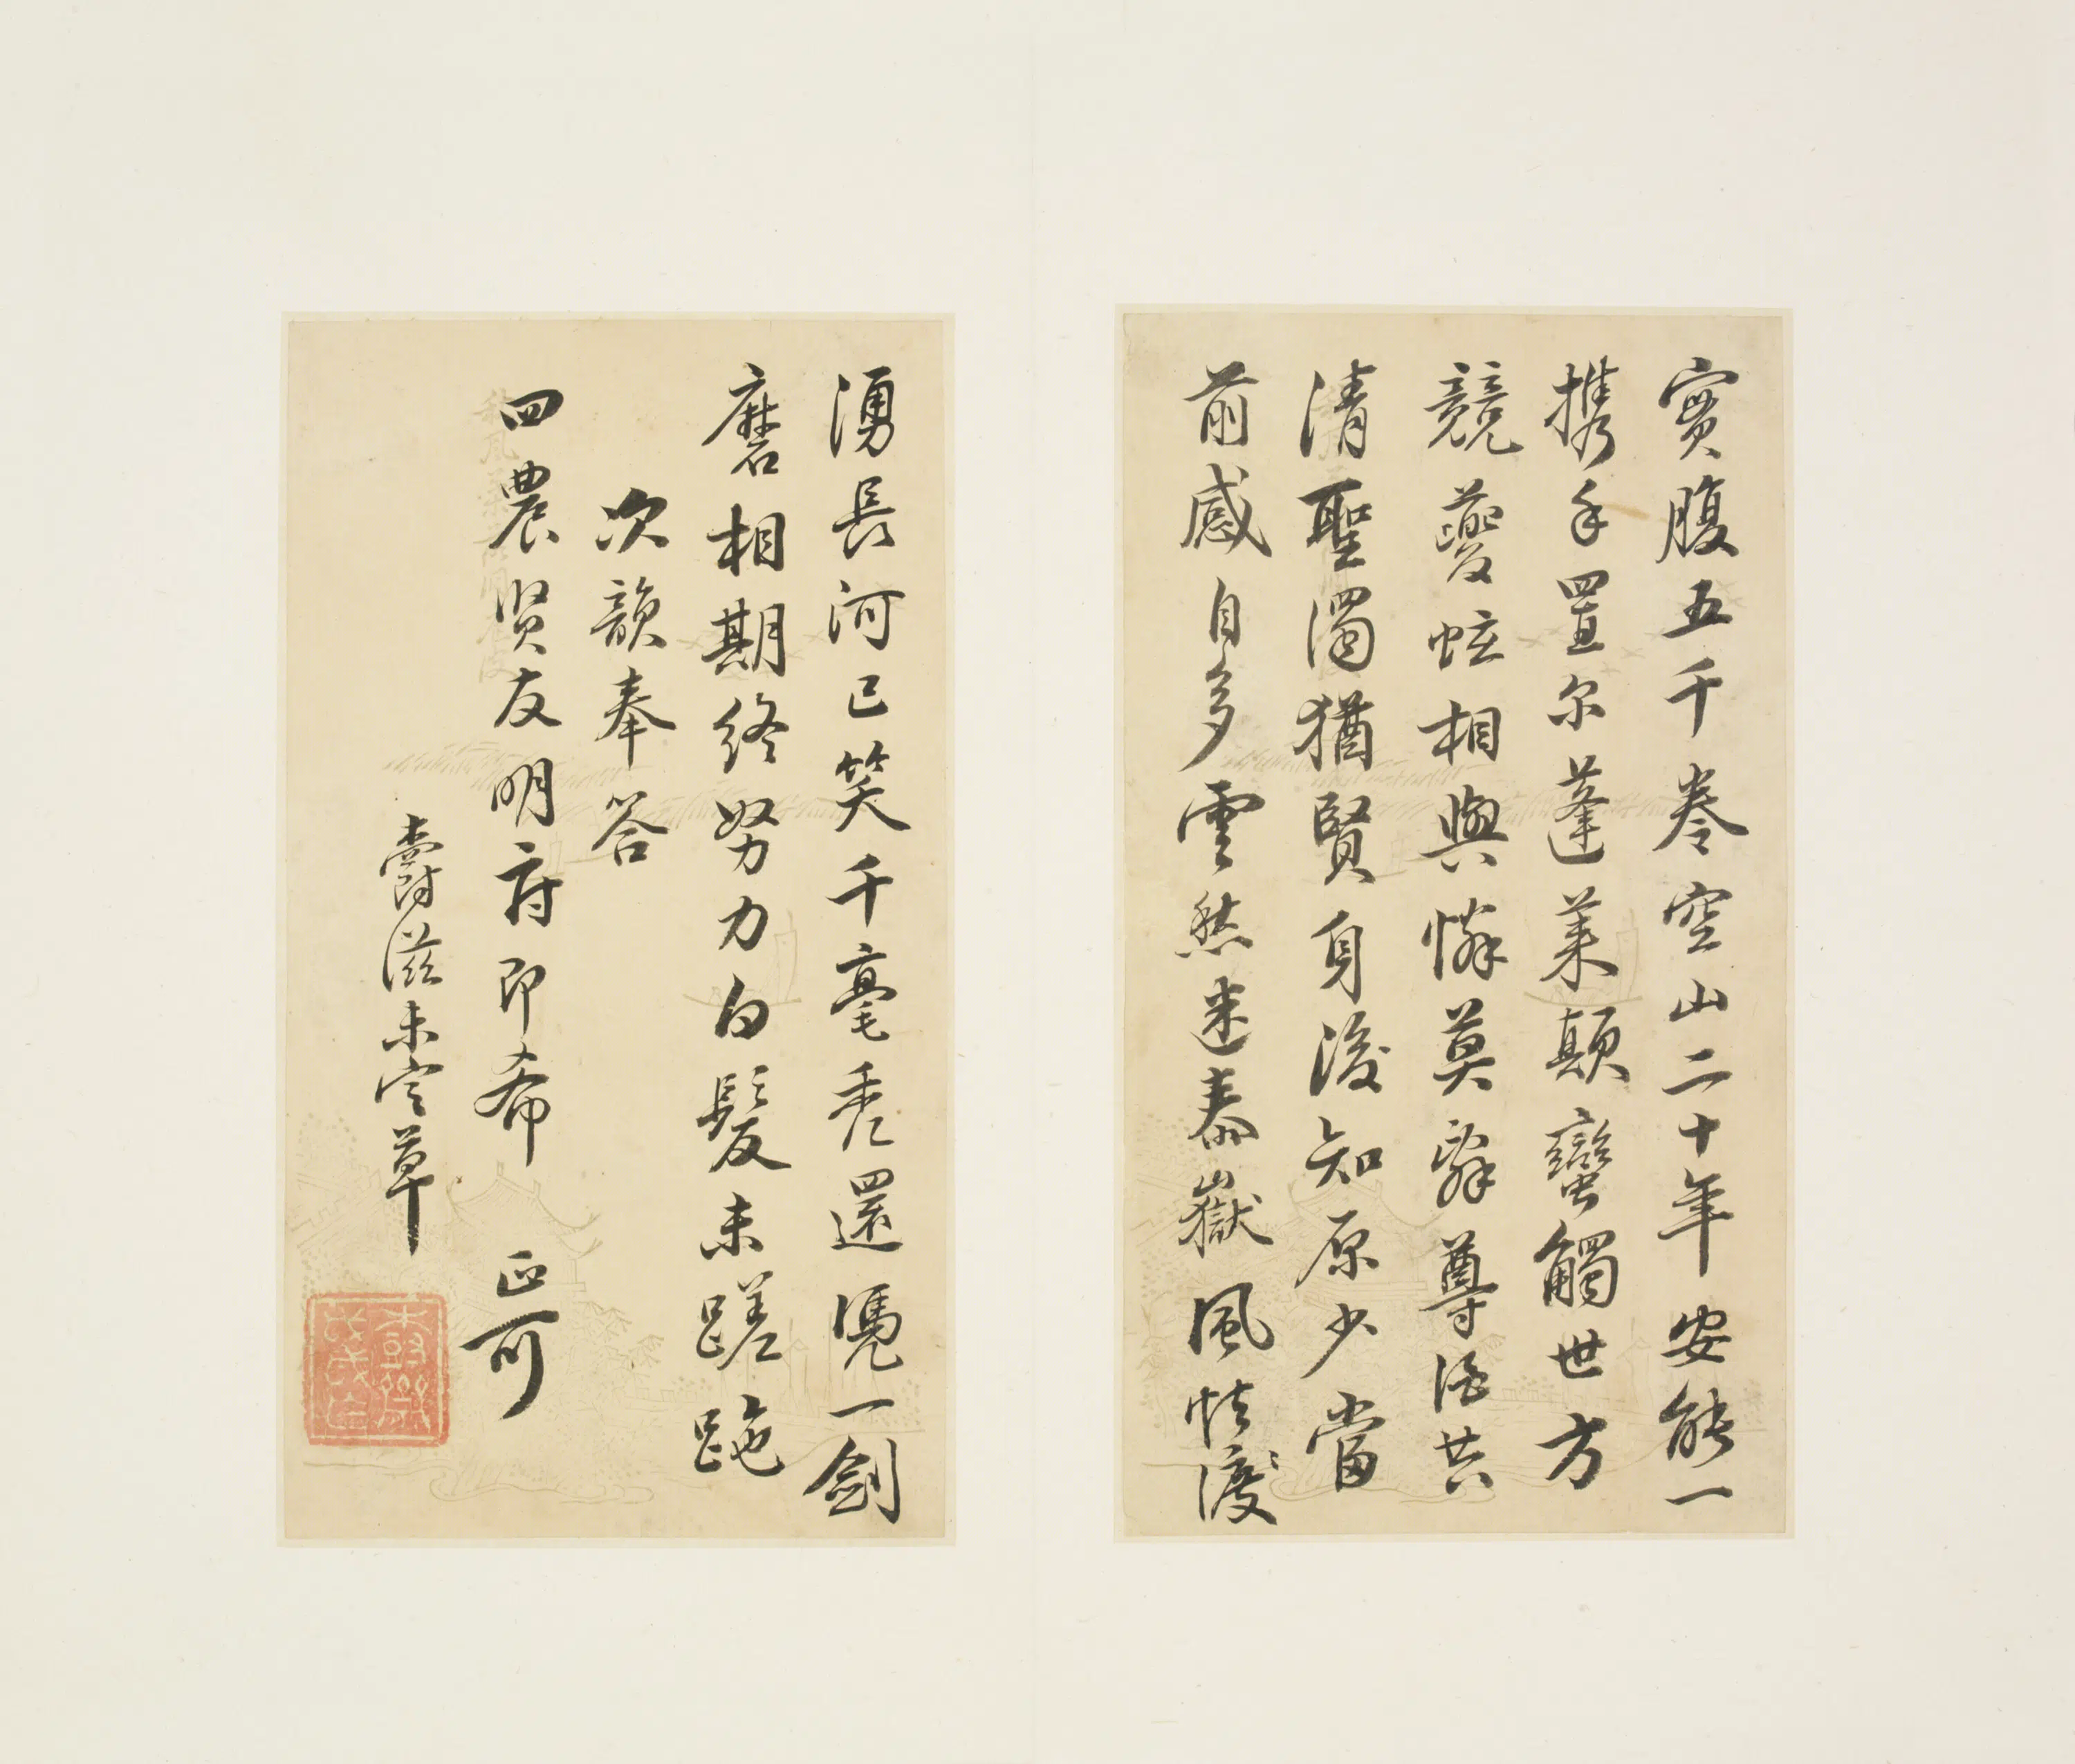 實腹五千卷空山二十年安能一
攜手置尔蓬萊顛蠻觸世方
競夔蚿相與憐莫辭尊酒共
清聖濁猶賢身後知原少當
前感自多雲愁迷泰嶽風怯渡
湧長河已笑千毫禿還憑一劍
磨相期終努力白髮未蹉跎
次韻奉答
四農賢友明府即希 正可
爵滋未定草